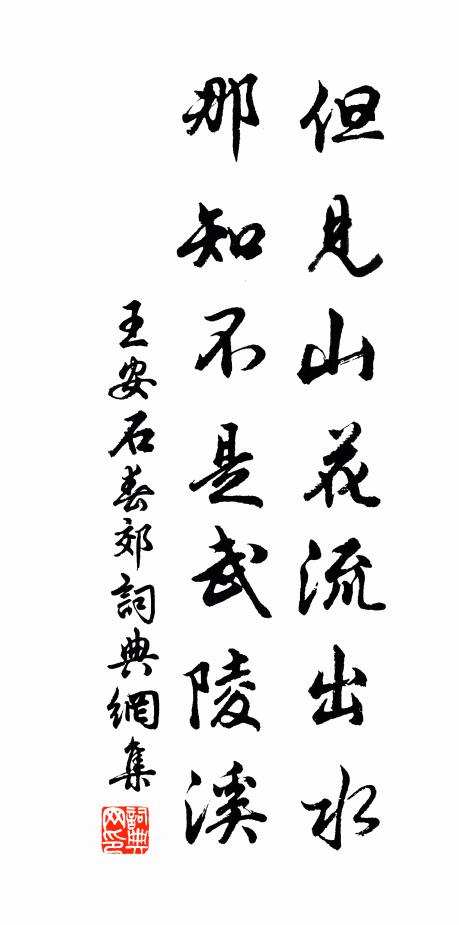 但見山花流出水
那知不是武陵溪
王安石春郊詞典網集
詞典网印